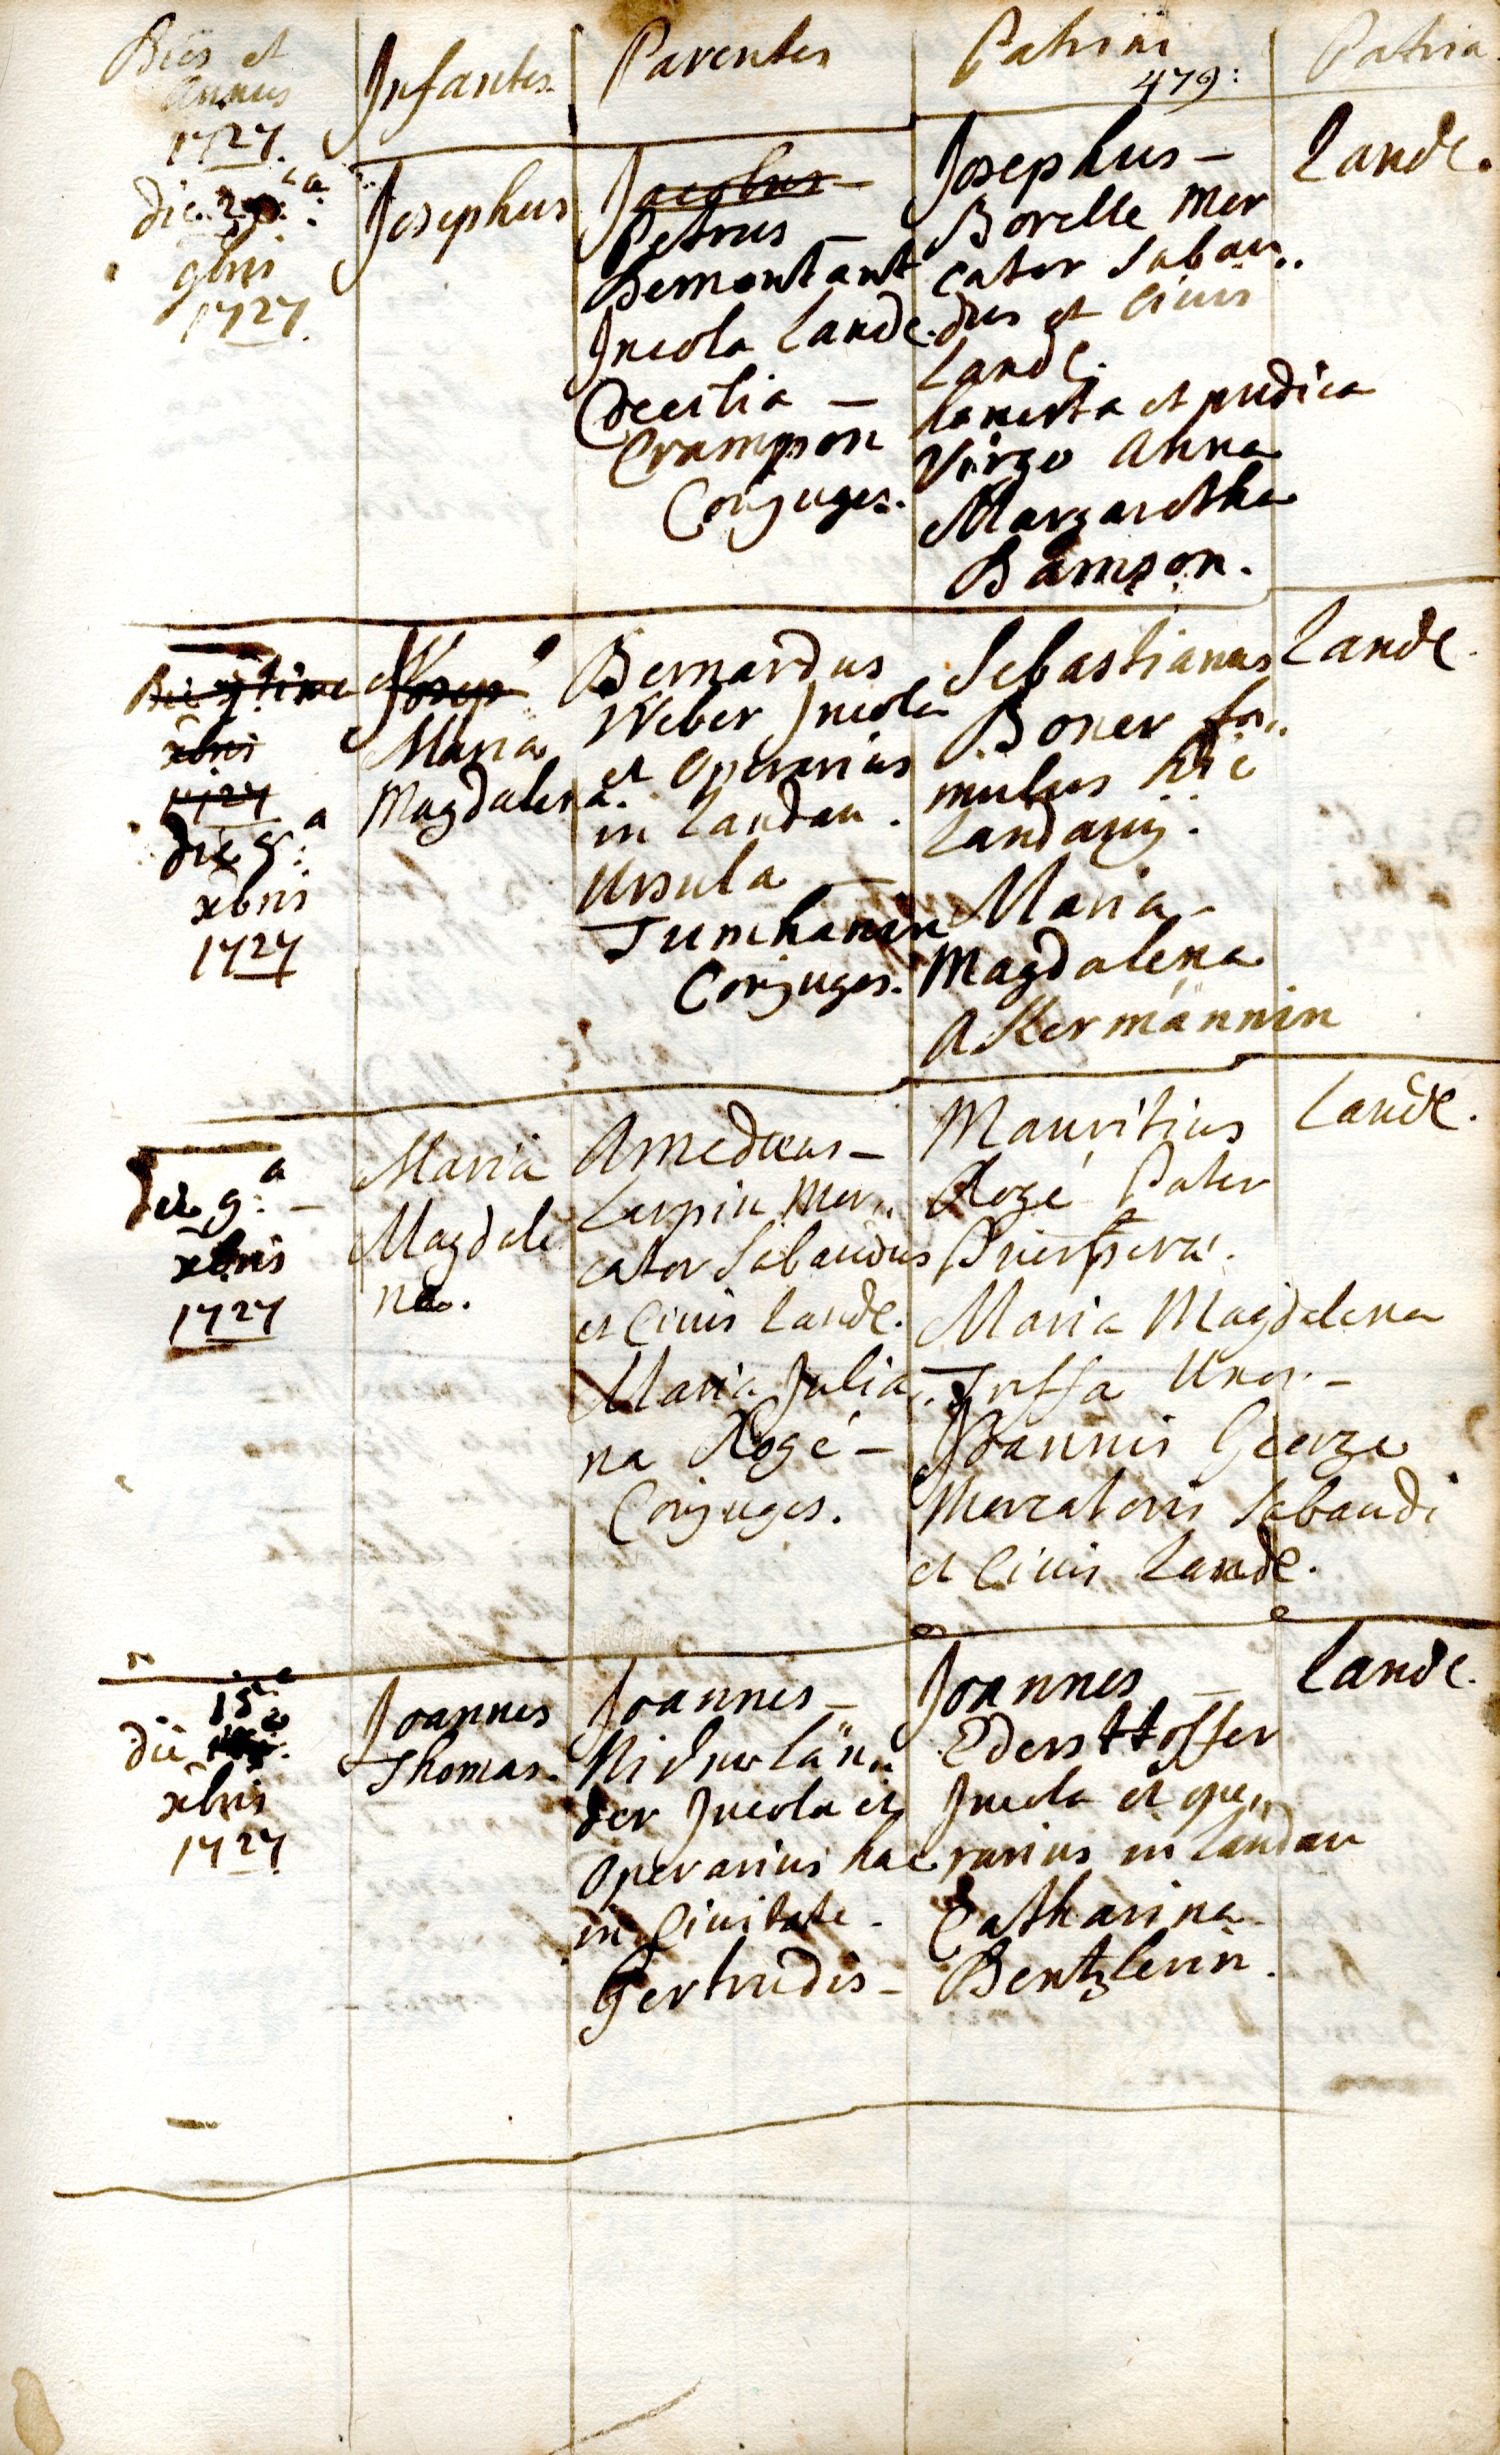 Dies et
Annus
1727.
Infantes
Parentes
Patrini
479:
Patria
die
9bris
1727.
Josephus
Jacobus –
Petrus –
Demontant
Incola Lande.
Cecilia –
Crampon
Conjuges.
Josephus –
Borelle Mer
cator Sabau..
dus et Civis
Lande.
honesta et pudica
Virgo Anna
Margaretha
Bamson.
Lande.
Die
xbris
1727
die 9.a
xbris
1727
Josep
Maria
Magdalena.
Bernardus
Weber Incola
et Operarius
in Landau.
Ursula –
Tumhanin
Conjuges.
Sebastianus
Boner fa..
mulus hic
Landavij.
Maria –
Magdalena
Akermännin
Lande.
die 9:a –
xbris
1727
Maria
Magdale
na.
Amedeus –
Lerpin Mer..
cator Sabaudus
et Civis Lande.
Maria Julia..
na Rogé –
Conjuges.
Mauritius
Rogé Pater
Puerperae.
Maria Magdalena
Uxor –
Joannis George
Mercatoris Sabaudi
et Civis Lande.
Lande.
15a
die
xbris
1727
Joannes
Thomas.
Joannes –
Niderlän..
der Incola et
Operarius hac
in Civitate.
Gertrudis –
Joannes –
Edersttoffer
Incola et ope..
rarius in Landau
Catharina
Bentzlerin.
Lande.